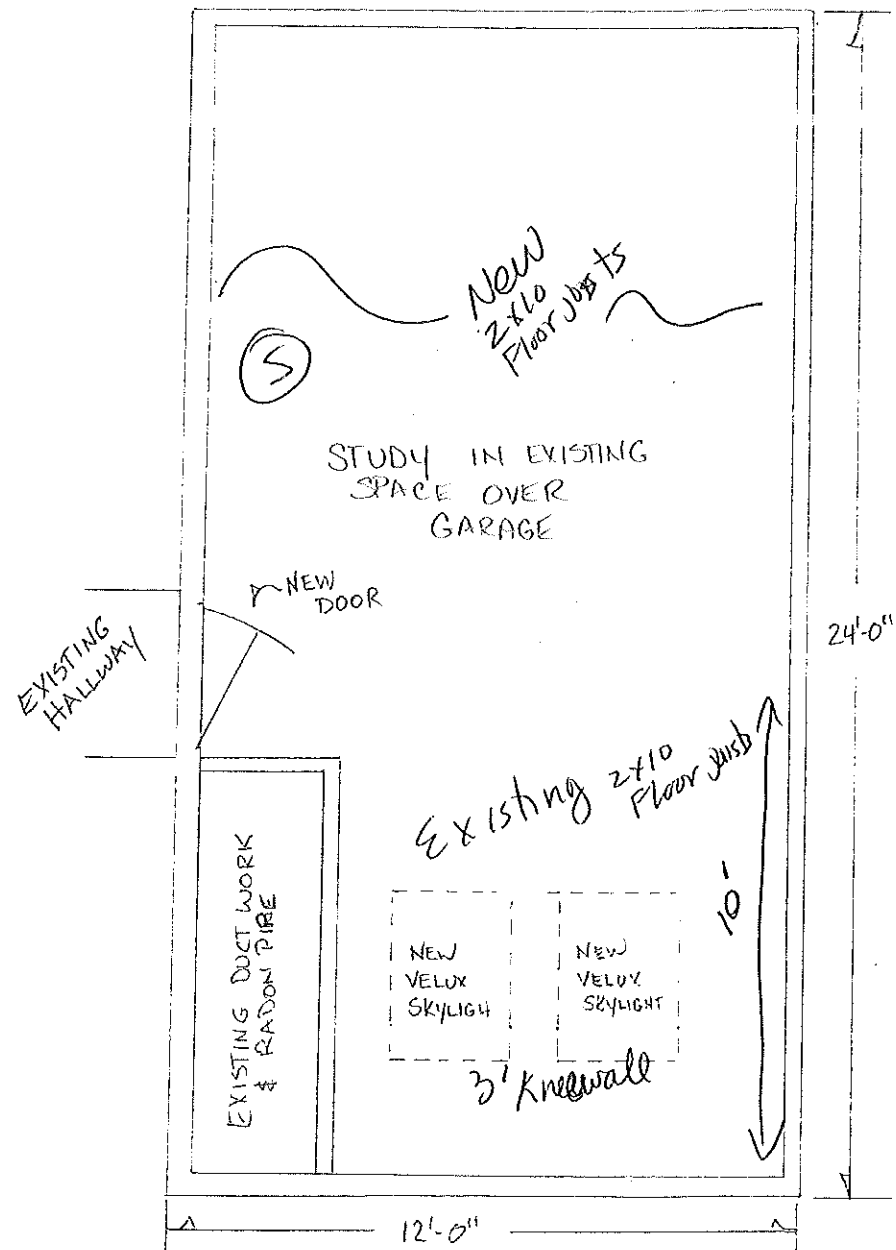 New
2x10
Floor Joists
S
STUDY IN EXISTING
SPACE OVER
GARAGE
NEW
DOOR
EXISTING
HALLWAY
24'-0"
Existing 2x10
Floor Joists
10'
EXISTING DUCT WORK
& RADON PIPE
NEW
VELUX
SKYLIGH
NEW
VELUX
SKYLIGHT
3' Kneewall
12'-0"